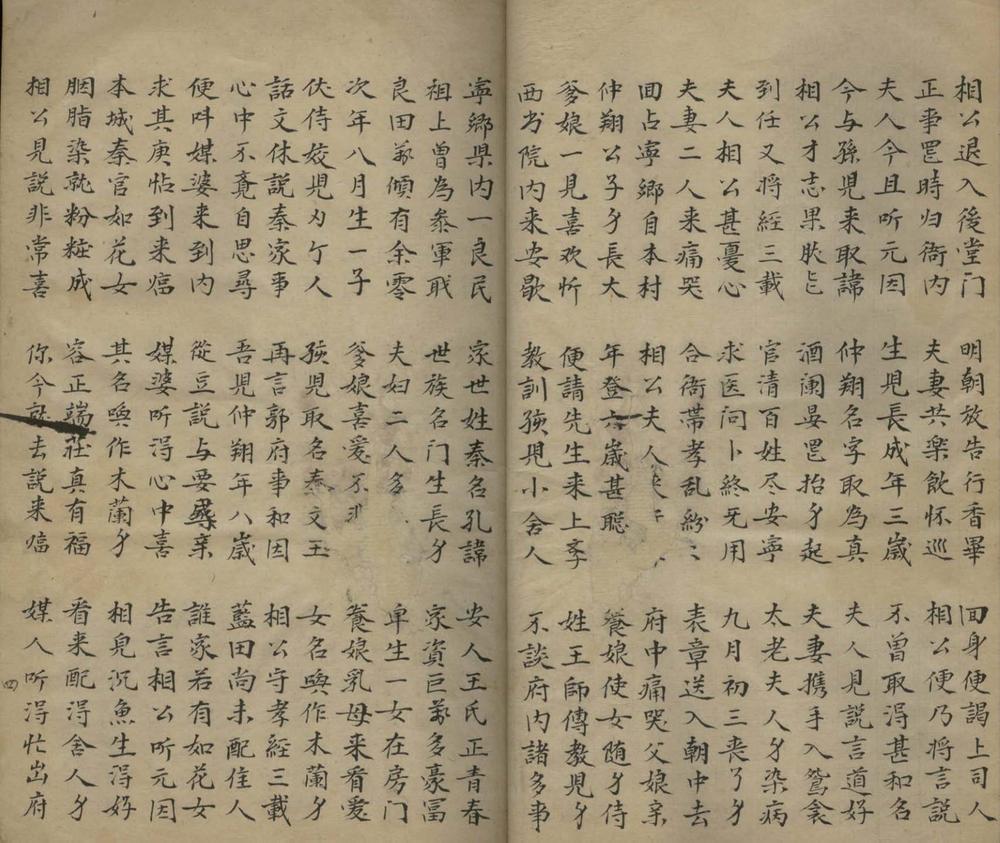 相公退入後堂门　明朝放告行香畢　回身便謁上司人
正事罢時归衙内　夫妻共楽飲怀巡　相公便乃將言説
夫人今且听元因　生児長成年三歲　不曾取得甚和名
今与孫児来取諱　仲翔名字取為真　夫人見説言道好
相公才志果　酒阑晏罢抬身起　夫妻携手入鴛衾
到任又將經三載　官清百姓尽安寧　太老夫人身染病
夫人相公甚憂心　求医问卜終无用　九月初三丧了身
夫妻二人来痛哭　合衙帶孝乱紛〻　表章送入朝中去
回占寧鄉自本村　相公夫人　府中痛哭父娘亲
仲翔公子身長大　年登六歲甚聪　養娘使女随身侍
爹娘一見喜欢忻　便請先生来上斈　姓王師傅教児身
西书院内来安歇　教訓孩児小舍人　不談府内諸多事
寧鄉県内一良民　家世姓秦名孔諱　安人王氏正青春
祖上曾為参軍职　世族名门生長身　家資巨萬多豪冨
良田萬傾有余零　夫妇二人多　单生一女在房门
次年八月生一子　爹娘喜爱不非　養娘乳母来看爱
伏侍姣児亇人　孩児取名秦文玉　女名喚作木蘭身
話文休説秦家事　再言郭府事和因　相公守孝經三載
心中不覔自思尋　吾児仲翔年八歲　藍田尚未配佳人
便呌媒婆来到内　從豆説与要尋亲　誰家若有如花女
求其庚帖到来臨　媒婆听得心中喜　告言相公听元因
本城秦官如花女　其名喚作木蘭身　相皃沉魚生得好
胭脂染就粉粧成　容正端莊真有福　看来配得舍人身
相公見説非常喜　你今就去説来臨　媒人听得忙出府
四